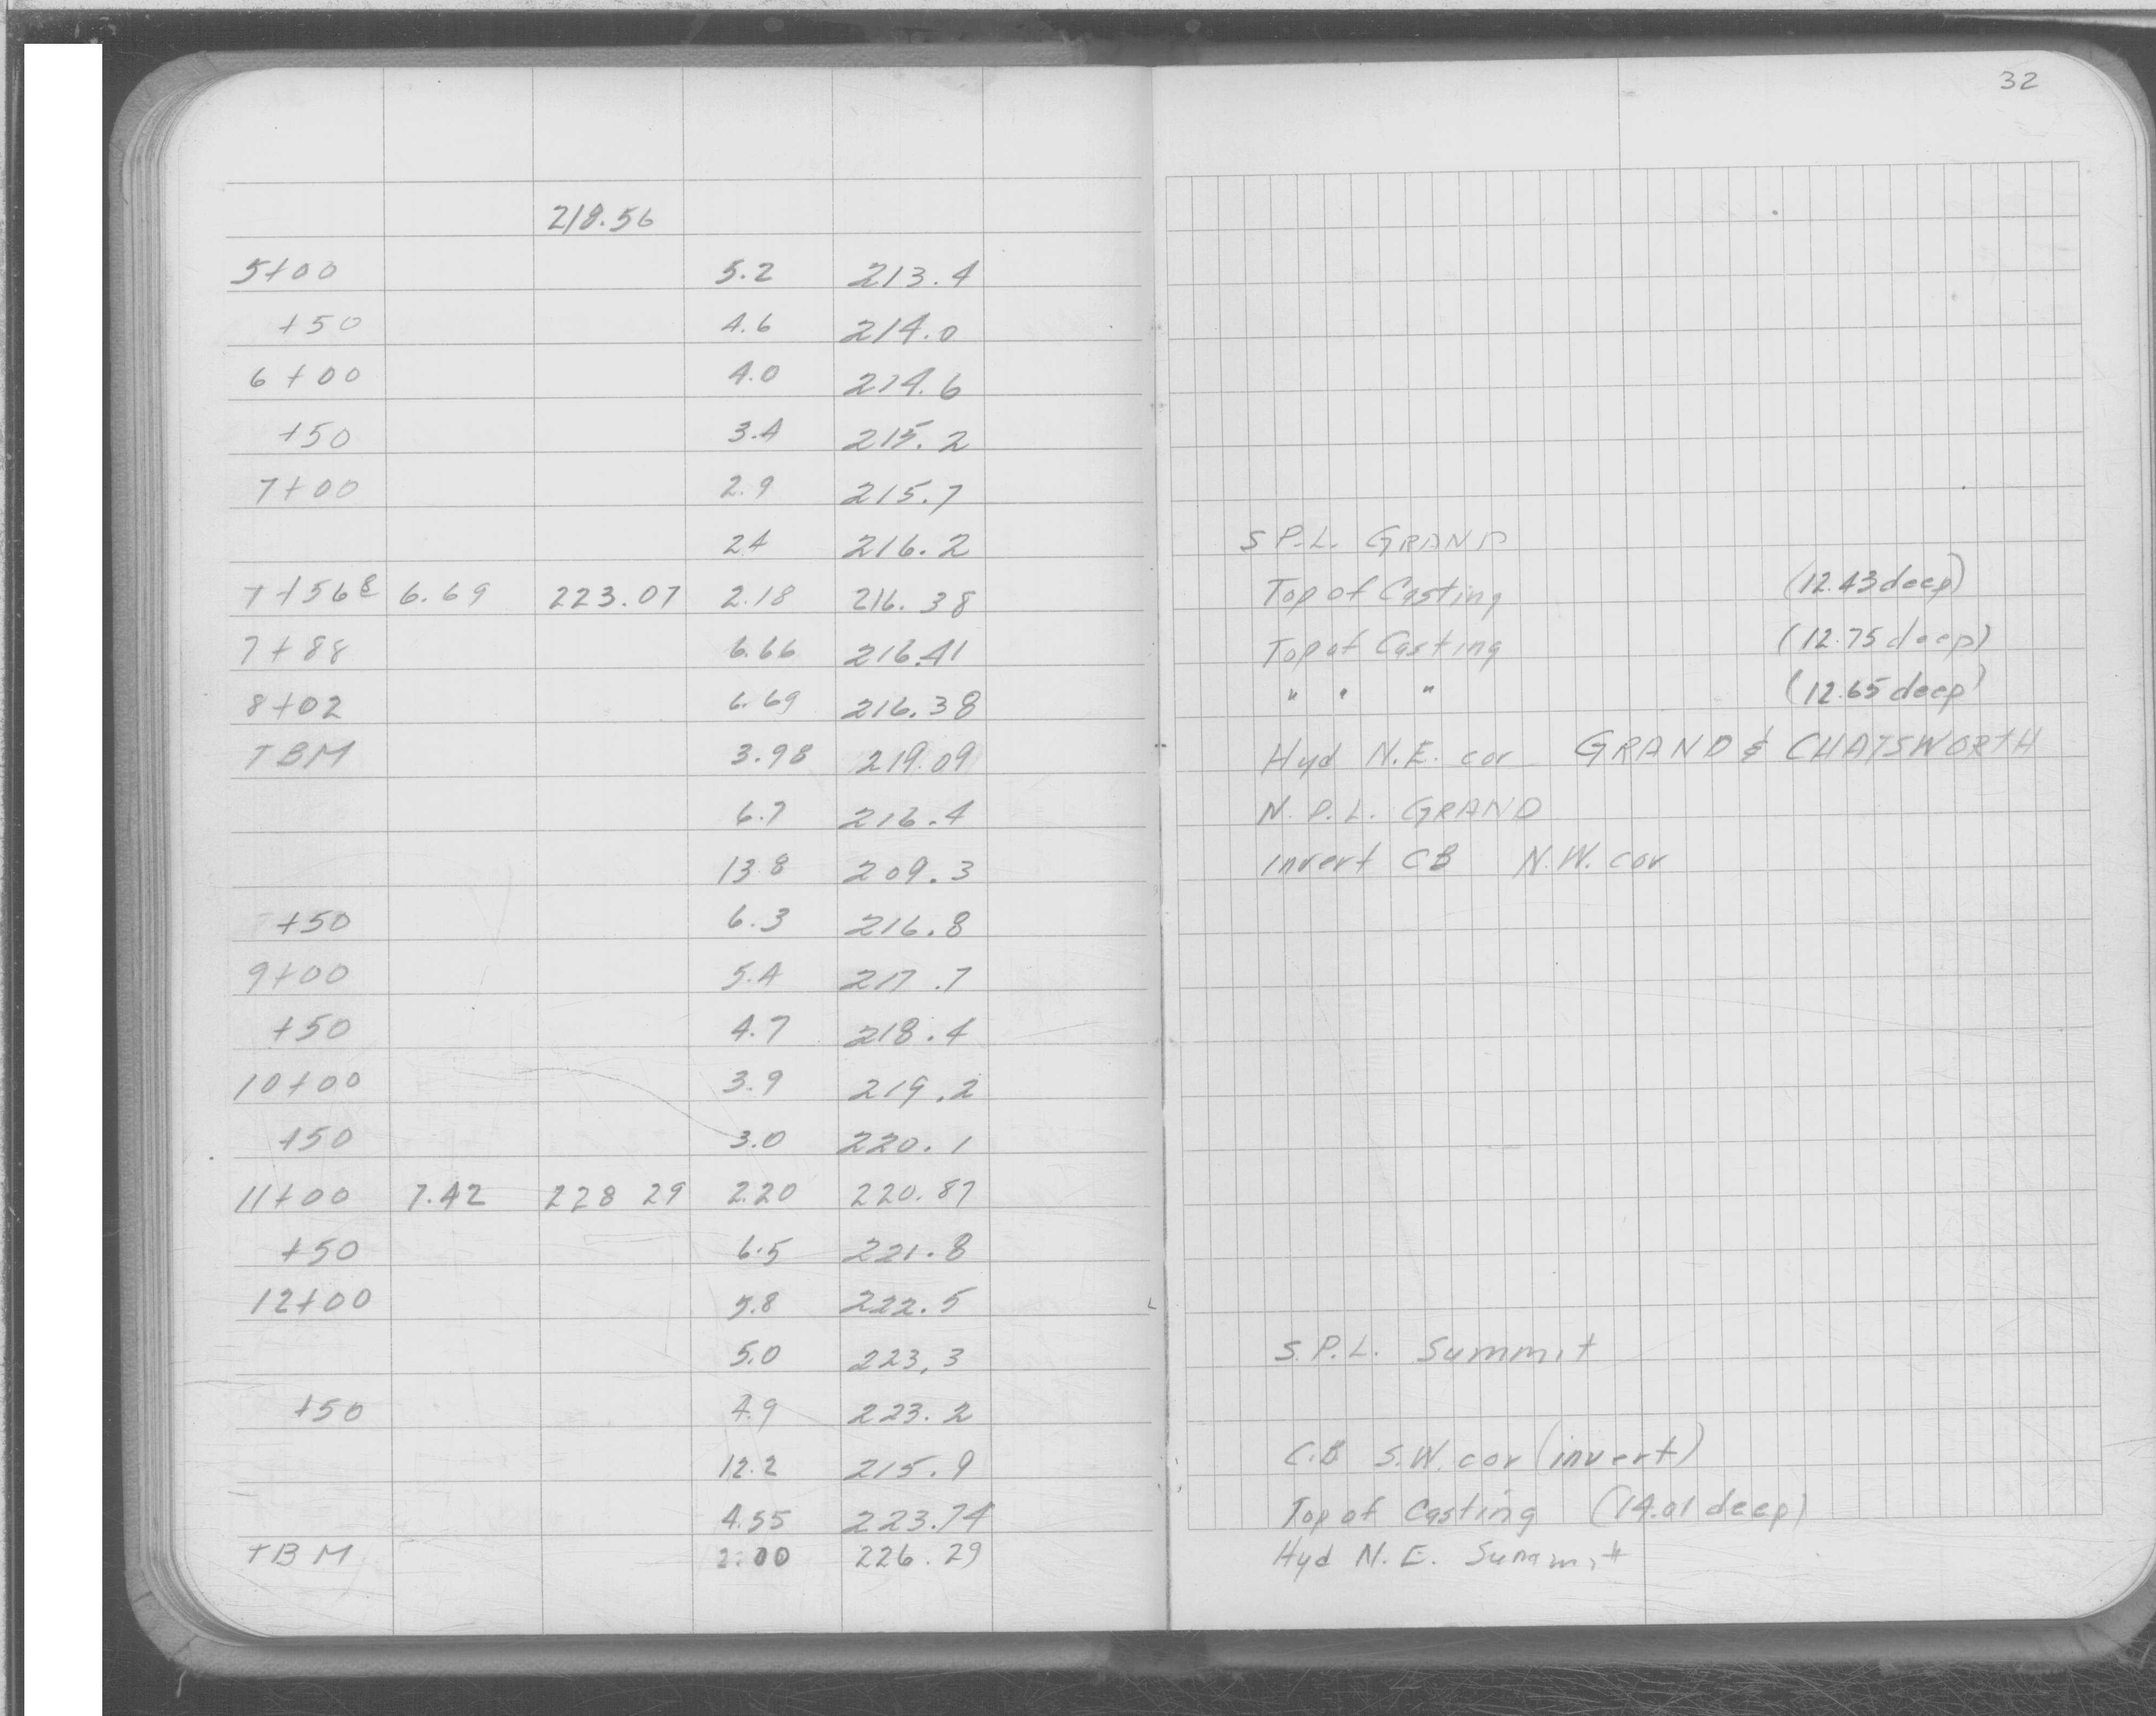 32
218.56
5+00 5.2 213.4
+50 4.6 214.0
6+00 4.0 214.6
+50 3.4 215.2
7+00 2.9 215.7
2.4 216.2 S P.L. GRAND
7+56 8 6.69 223.07 2.18 216.38 Top of Casting (12.43 deep)
7+88 6.66 216.41 Top of Casting (12.75 deep)
8+02 6.69 216.38 " " " (12.65 deep)
TBM 3.98 219.09 Hyd N.E. cor GRAND & CHATSWORTH
6.7 216.4 N. P.L. GRAND
13.8 209.3 invert CB N.W. cor
+50 6.3 216.8
9+00 5.4 217.7
+50 4.7 218.4
10+00 3.9 219.2
+50 3.0 220.1
11+00 7.42 228 29 2.20 220.87
+50 6.5 221.8
12+00 5.8 222.5
5.0 223.3 S.P.L. Summit
+50 4.9 223.2
12.2 215.9 C.B S.W. cor (invert)
4.55 223.74 Top of Casting (14.01 deep)
TBM 2.00 226.29 Hyd N.E. Summit